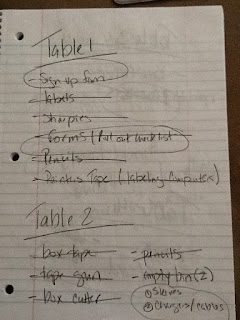 Table 1
- Sign up form
- labels
- Sharpies
- forms / Put out checklist
- Pencils
- Painters Tape (labeling computers)
Table 2
- box tape
- tape gun
- box cutter
- pencils
- empty bin (2)
① Sleeves
② Chargers/cables